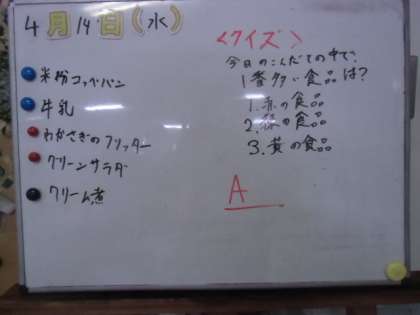 4月14日(水)
米粉コッペパン
牛乳
わかさぎのフリッター
グリーンサラダ
クリーム煮
<クイズ>
今日のこんだての中で、
1番多い食品は?
1. 赤の食品
2. 緑の食品
3. 黄の食品
A